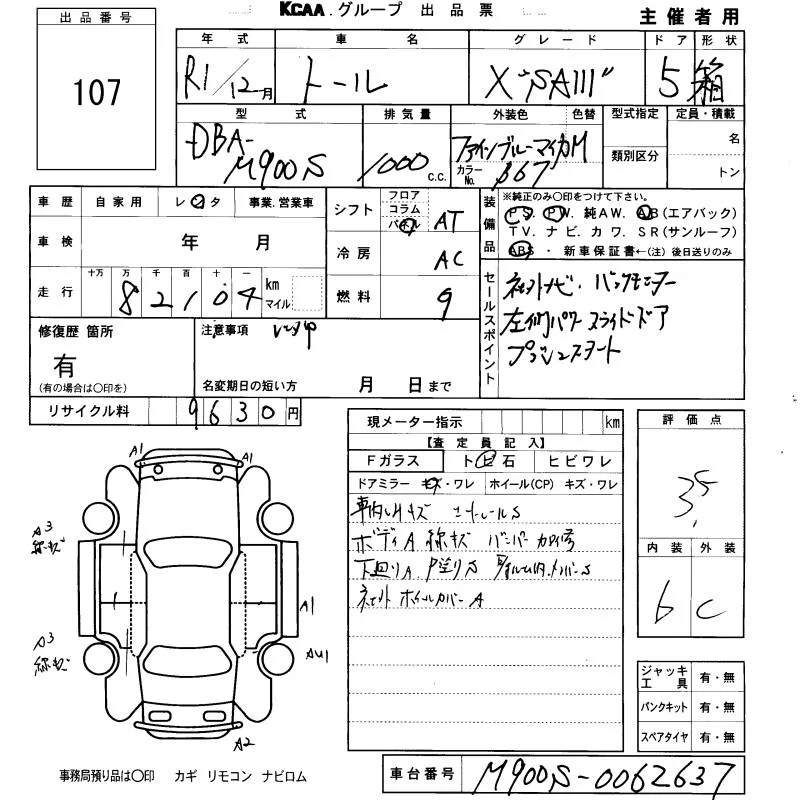 KCAA.グループ 出品票
主催者用
出品番号
107
年式 車名 グレード ドア 形状
R1/12月 トール X "SAIII" 5 箱
型式 排気量 外装色 色替 型式指定 定員・積載
DBA-M900S 1000 c.c. ファインブルーマイカM
カラーNo. B67
類別区分
名
トン
車歴 自家用 レンタ 事業.営業車
車検 年 月
走行 十万 万 千 百 十 一
82104 km マイル
シフト フロア コラム パネル AT
冷房 AC
燃料 g
装備品
※純正のみ○印をつけて下さい。
PS. PW. 純AW. AB(エアバック)
TV. ナビ. カワ. SR(サンルーフ)
ABS・新車保証書←(注) 後日送りのみ
セールスポイント
社外ナビ. バックモニター
左側パワースライドドア
プッシュスタート
修復歴 箇所
有
(有の場合は○印を)
注意事項
名変期日の短い方 月 日まで
リサイクル料 9630円
現メーター指示 km
【査定員記入】
Fガラス トビ石 ヒビワレ
ドアミラー キズ・ワレ ホイール(CP) キズ・ワレ
車内しみキズ
ボディA 線キズ バンパー
下廻りA
社外ホイールカバーA
評価点
3.5
内装 外装
6 C
A1 A1
A3 線キズ
A1
A3 線キズ
AU1
A2
ジャッキ工具 有・無
パンクキット 有・無
スペアタイヤ 有・無
事務局預り品は○印 カギ リモコン ナビロム
車台番号 M900S-0062637